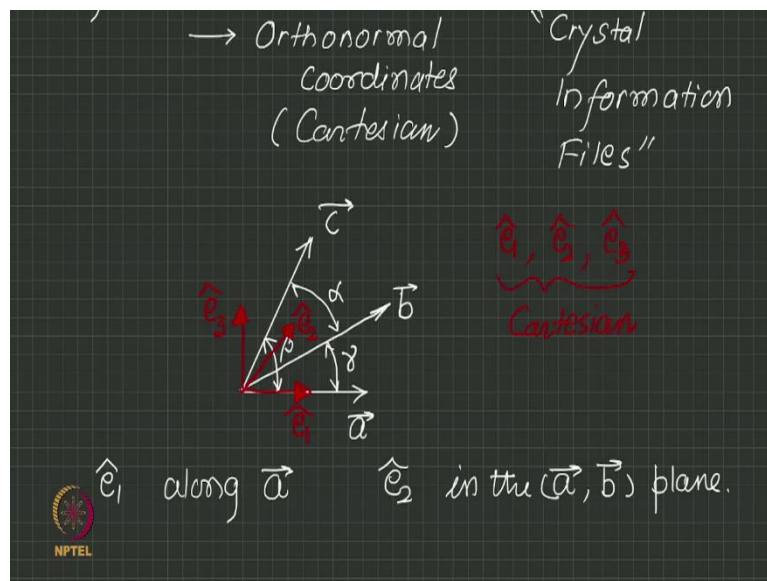 → Orthonormal
Coordinates
(Cartesian)
"Crystal
Information
Files"
c⃗
α
b⃗
ê₃
ê₂
β
γ
ê₁
a⃗
ê₁, ê₂, ê₃
Cartesian
ê₁ along a⃗ ê₂ in the (a⃗, b⃗) plane.
NPTEL